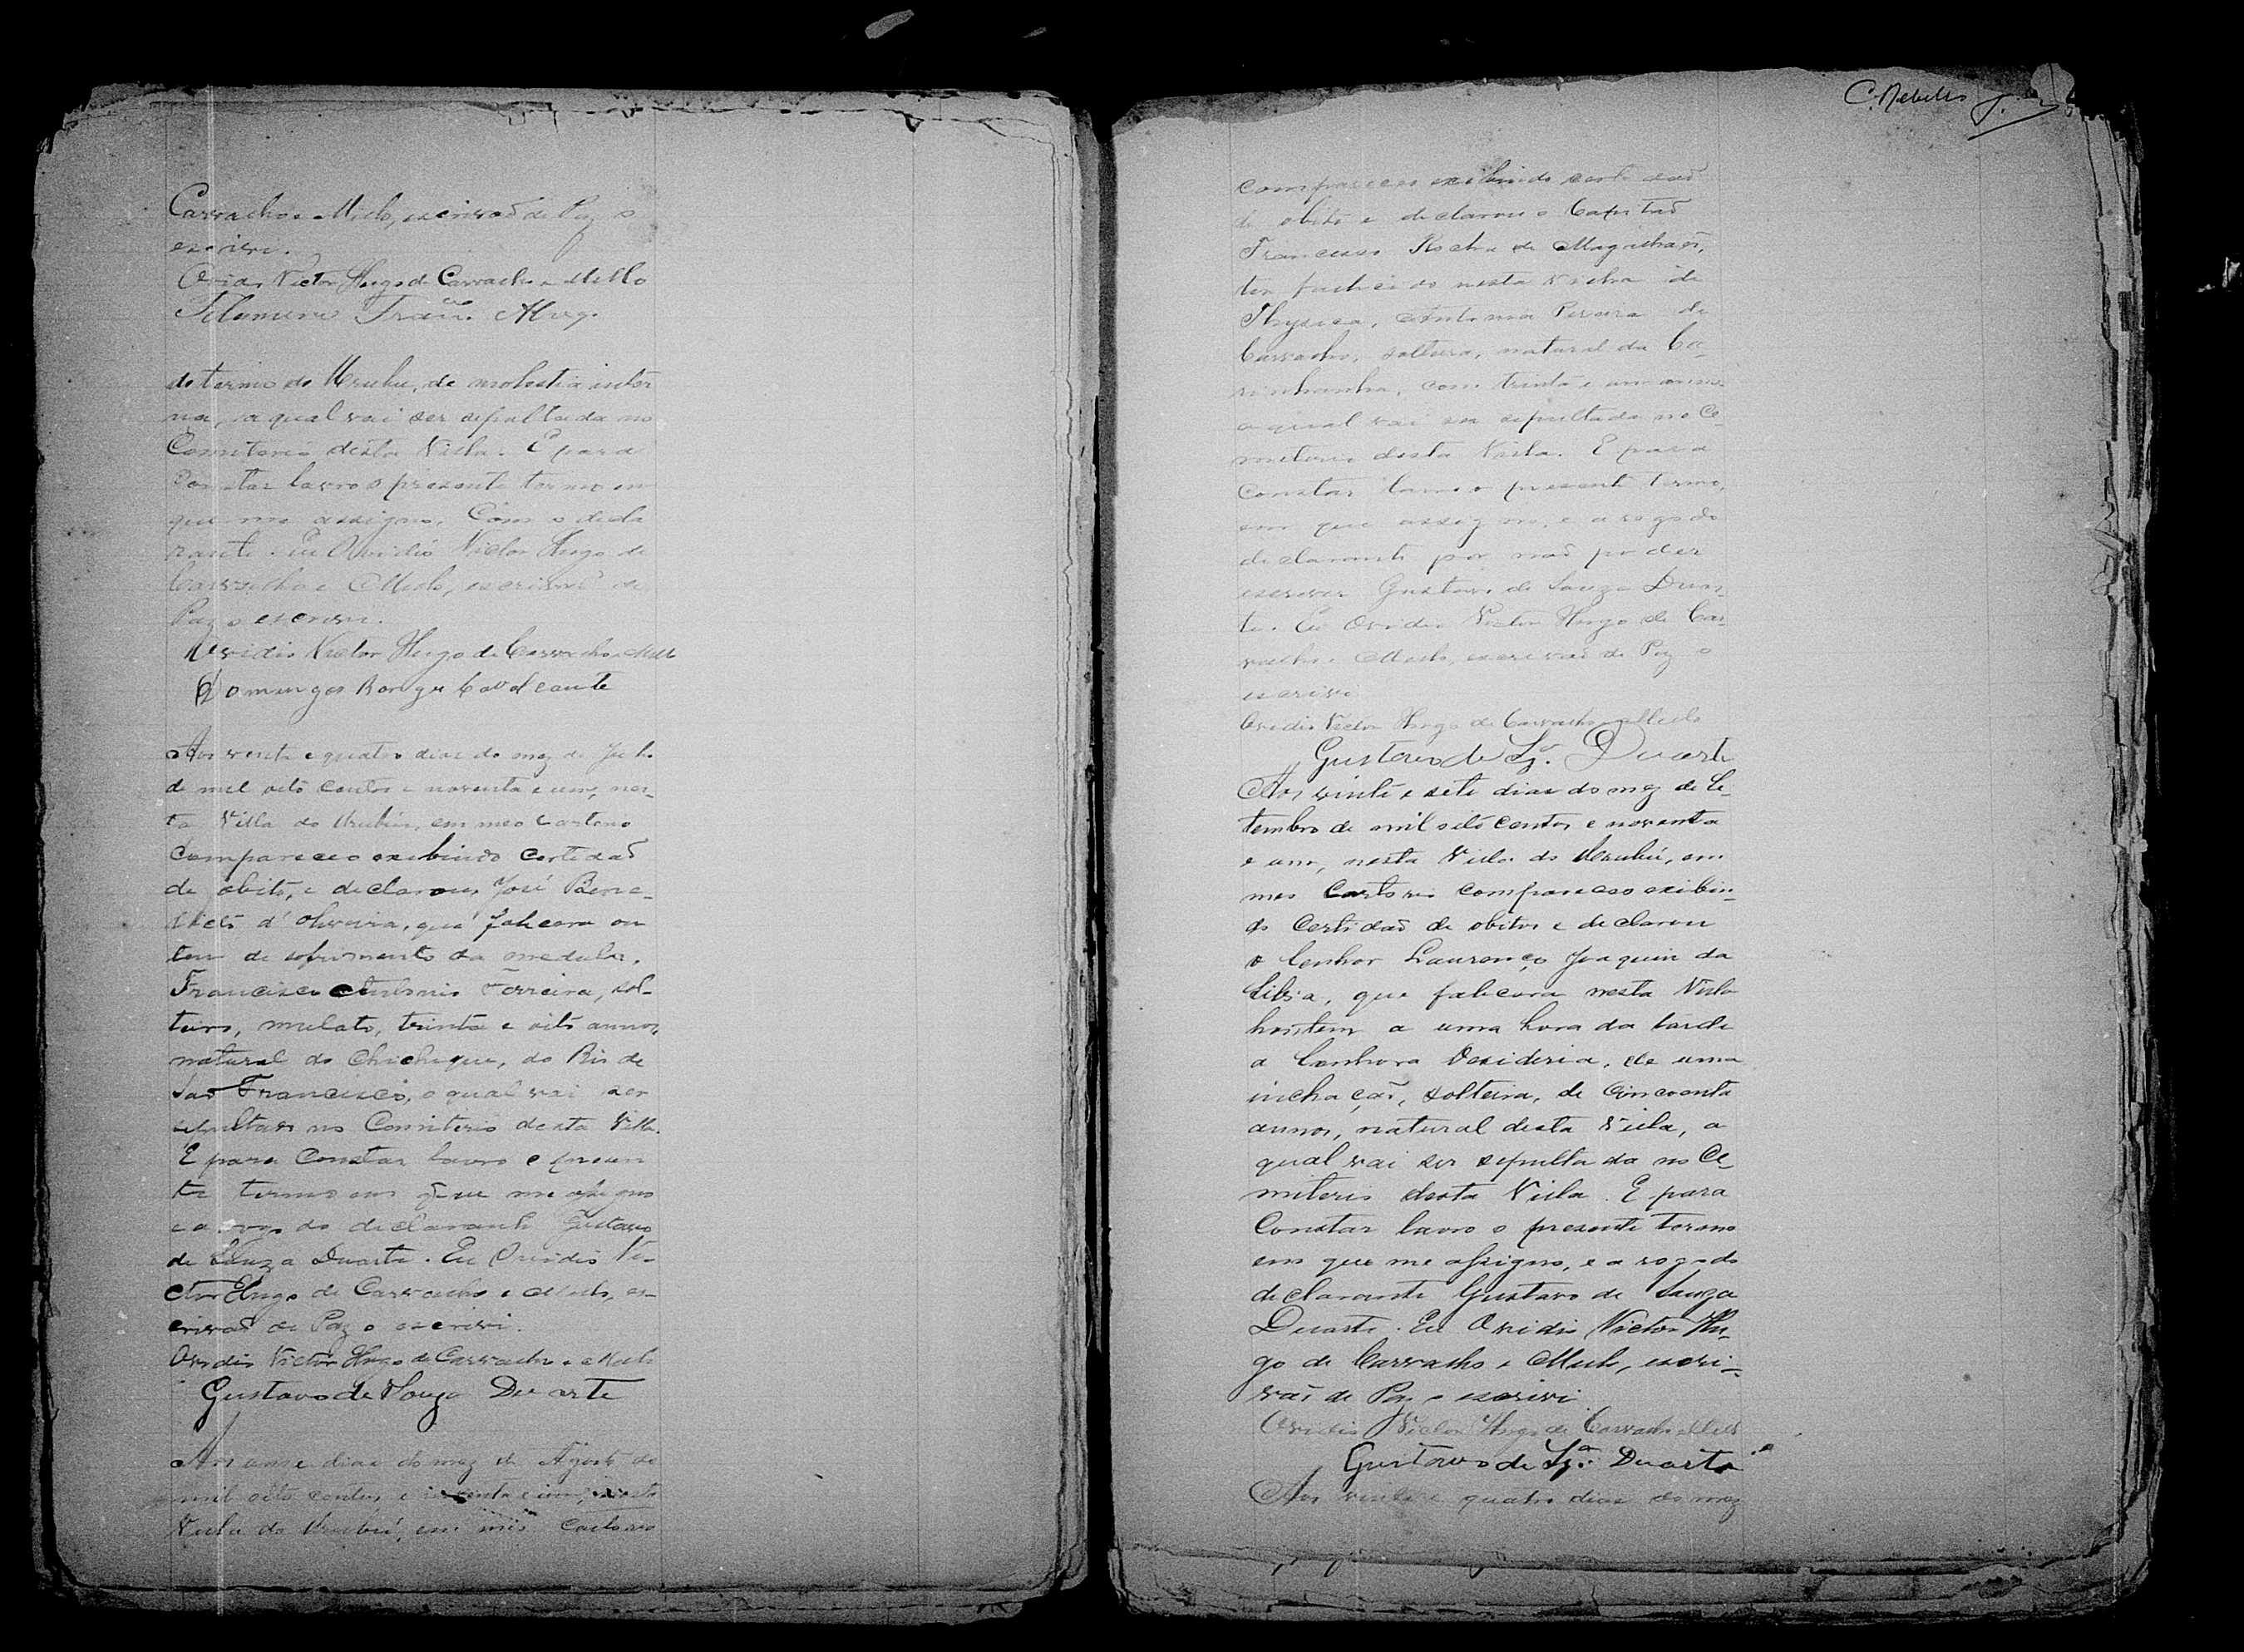 Carvalho e Mello, escrivaõ de Paz o
escrevi.
Ovidio Victor Hugo de Carvalho e Mello
do termo do Urubu, de molestia inter
na, a qual vai ser sepultada no
Cemiterio desta Villa. E para
Constar lavro o presente termo em
que me assigno, Com o decla
rante. Eu Ovidio Victor Hugo de
Carvalho e Mello, escrivaõ de
Paz o escrevi.
Ovidio Victor Hugo de Carvalho e Mello
Domingos Cavalcante
Aos vinte e quatro dias do mez de
de mil oito centos e noventa e um, nes-
ta Villa do Urubú, em meo Cartorio
Compareceo exebindo Certidaõ
de obito, e declarou, José Bene-
dicto d'Oliveira, que falicera on
tem de sofrimento da medula,
Francisco Antonio Ferreira, sol-
teiro, mulato, trinta e oito annos,
natural do Chichique, do Rio de
Saõ Francisco, o qual vai ser
sepultado no Cemiterio desta Villa.
E para Constar lavro o presen
te termo em que me assigno
e a rogo do declarante Gustavo
de Souza Duarte. Eu Ovidio Vi-
ctor Hugo de Carvalho e Mello, es-
crivaõ de Paz o escrivi.
Ovidio Victor Hugo de Carvalho e Mello
Gustavo de Souza Duarte
Aos onze dias do mez de Agosto de
mil oito centos e noventa e um, nesta
Villa do Urubú, em meo Cartorio
compareceo exebindo certidaõ
de obito e declarou o Capitaõ
Francisco Rocha de Magalhaẽs,
ter falicido nesta Villa de
Thysica, Antonia Pereira de
Carvalho, solteira, natural da Ca-
rinhanha, com trinta e um annos
a qual vai ser sepultada no Ce-
miterio desta Villa. E para
Constar lavro o presente termo,
em que assigno, e a rogo do
declarante por naõ poder
escrever Gustavo de Souza Duar-
te. Eu Ovidio Victor Hugo de Car-
valho e Mello, escrivaõ de Paz o
escrivi
Ovidio Victor Hugo de Carvalho e Mello
Gustavo de Sz.ª Duarte
Aos vinte e sete dias do mez de Se-
tembro de mil oito centos e noventa
e um, nesta Villa do Urubú, em
meo Cartorio compareceo exibin-
do Certidaõ de obitos e declarou
o Senhor Laurenço Joaquim da
Silva, que falicera nesta Villa
hontem a uma hora da tarde
a Senhora Desideria, de uma
inchaçaõ, solteira, de Cincoenta
annos, natural desta Villa, a
qual vai ser sepultada no Ce-
miterio desta Villa. E para
Constar lavro o presente termo
em que me assigno, e a rogo do
declarante Gustavo de Souza
Duarte. Eu Ovidio Victor Hu-
go de Carvalho e Mello, escri-
vaõ de Paz o escrivi
Ovidio Victor Hugo de Carvalho e Mello
Gustavo de Sz.ª Duarte
Aos vinte e quatro dias do mez